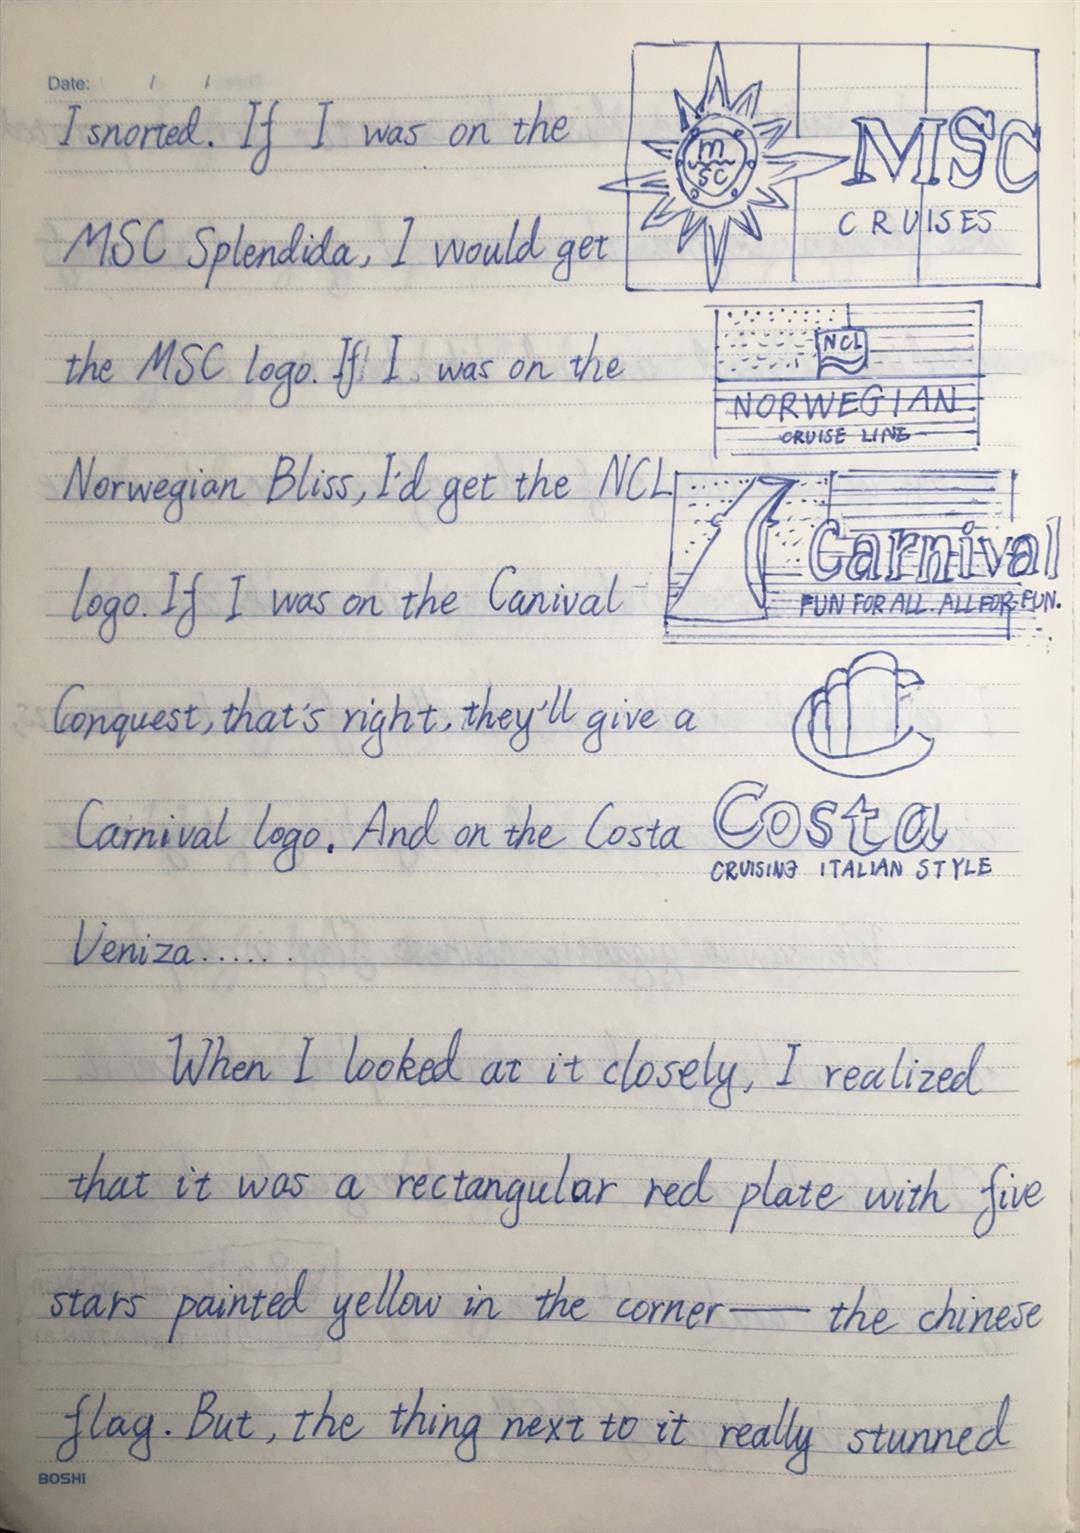 Date: / /
I snorted. If I was on the
m
SC
MSC
CRUISES
MSC Splendida, I would get
the MSC logo. If I was on the
NCL
NORWEGIAN
CRUISE LINE
Norwegian Bliss, I'd get the NCL
Carnival
FUN FOR ALL. ALL FOR FUN.
logo. If I was on the Canival
Conquest, that's right, they'll give a
Carnival logo. And on the Costa
Costa
CRUISING ITALIAN STYLE
Veniza......
When I looked at it closely, I realized
that it was a rectangular red plate with five
stars painted yellow in the corner — the chinese
flag. But, the thing next to it really stunned
BOSHI